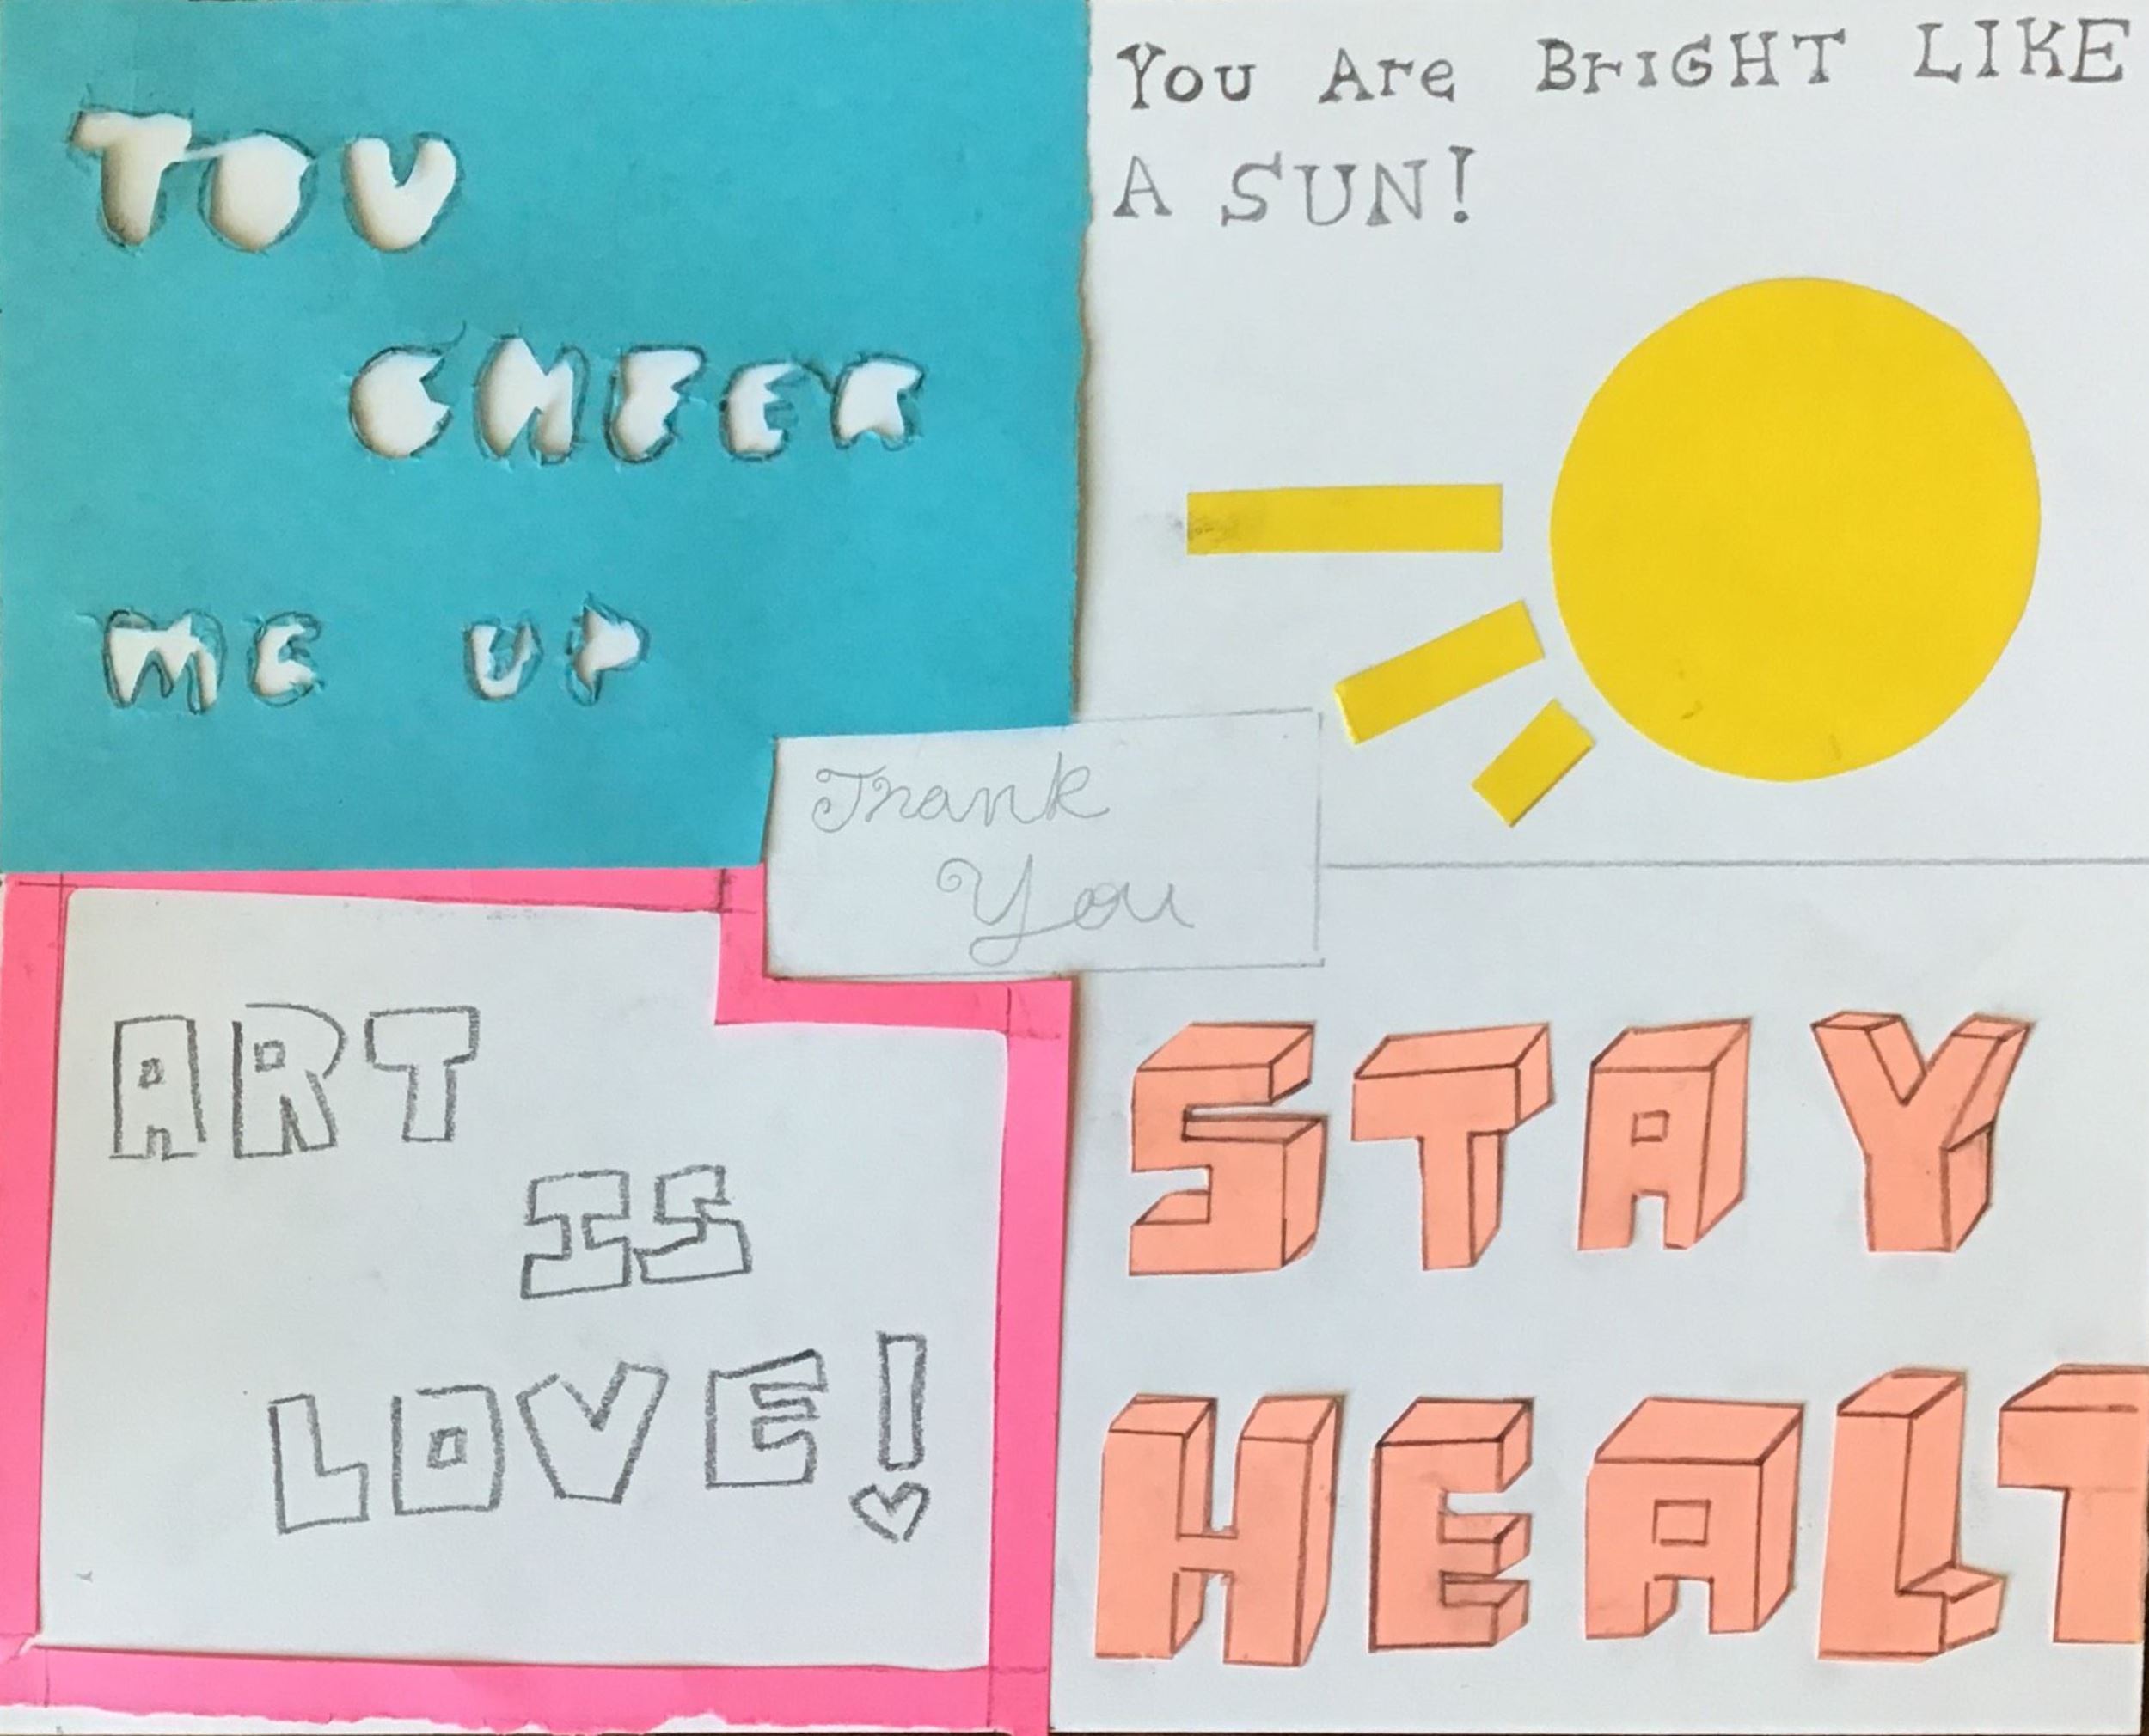 YOU
CHEER
ME UP
You Are BrIGHT LIKE
A SUN!
Thank
You
ART
IS
LOVE!
STAY
HEALT